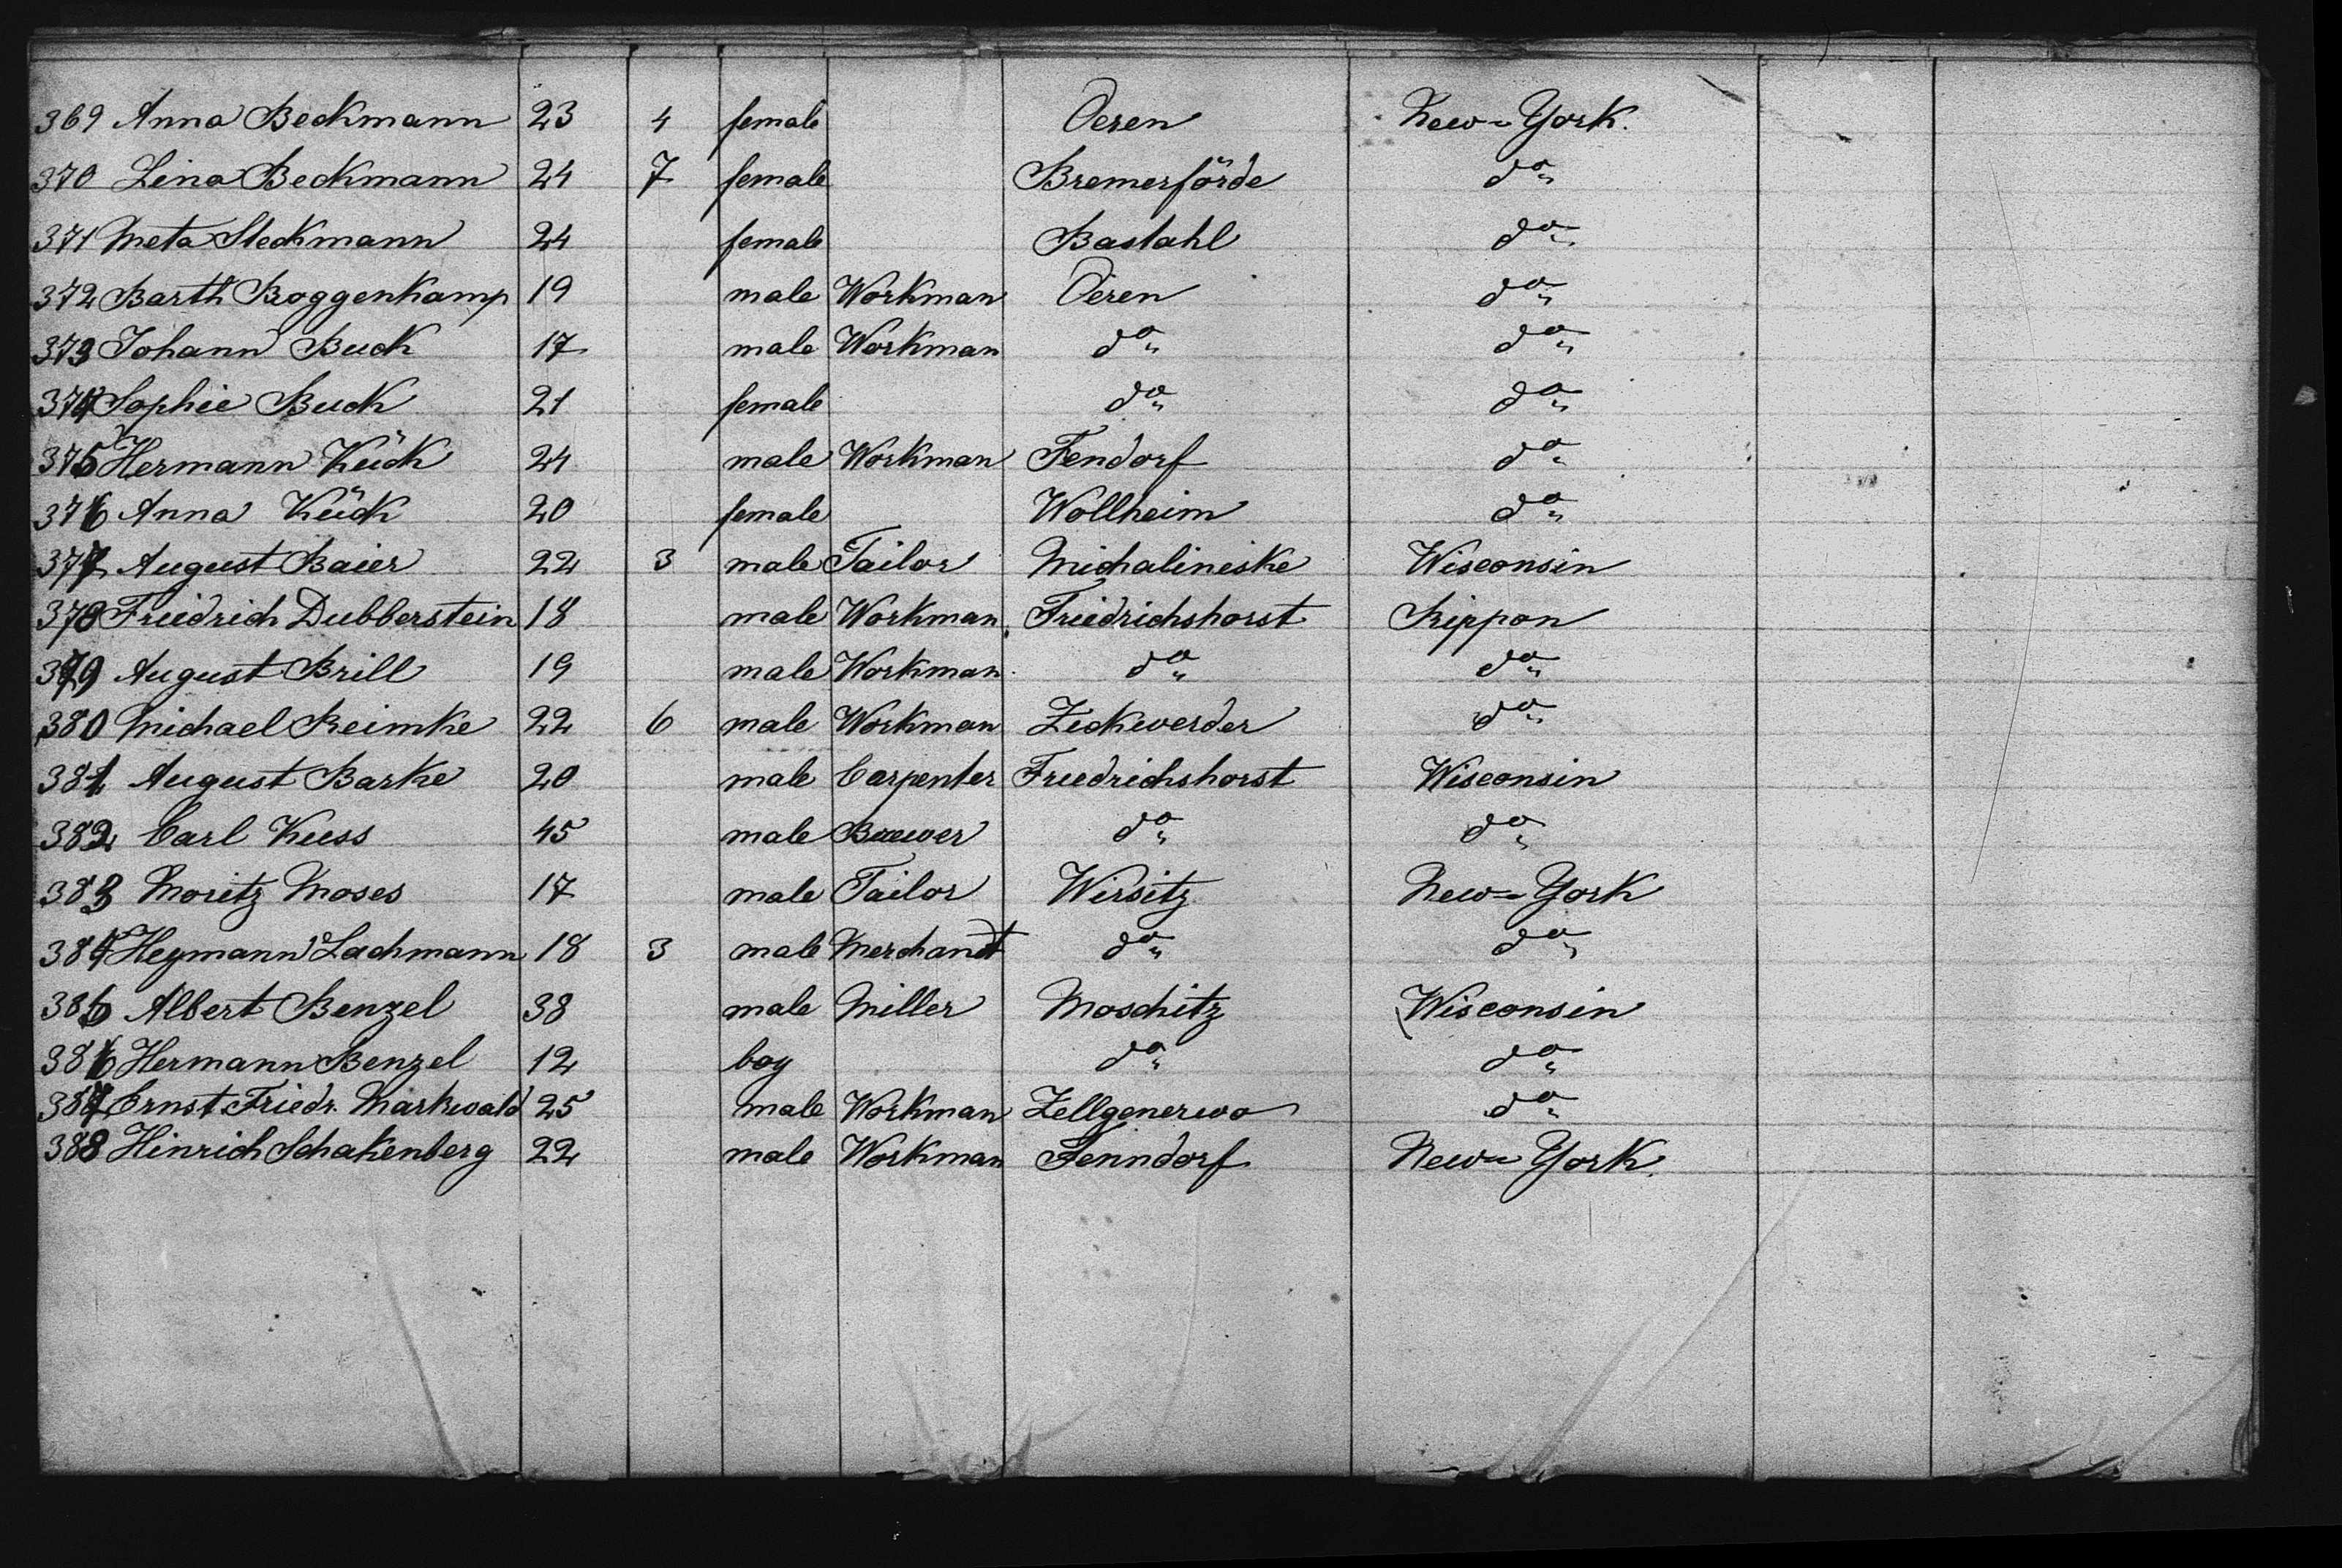 369 Anna Beckmann 23 4 female Oeren New-York.
370 Lina Beckmann 24 7 female Bremerförde do"
371 Meta Steckmann 24 female Bastahl do"
372 Barth Roggenkamp 19 male Workman Oeren do"
373 Johann Buck 17 male Workman do" do"
374 Sophie Buck 21 female do" do"
375 Hermann Kück 24 male Workman Fendorf do"
376 Anna Kück 20 female Wollheim do"
377 August Baier 22 3 male Tailor Michalineske Wisconsin
378 Friedrich Dubberstein 18 male Workman Friedrichshorst Rippon
379 August Brill 19 male Workman do" do"
380 Michael Reimke 22 6 male Workman Zeckwerder do"
381 August Barke 20 male Carpenter Friedrichshorst Wisconsin
382 Carl Kuss 45 male do" do"
383 Moritz Moses 17 male Tailor Wirsitz New-York
384 Heymann Lachmann 18 3 male Merchandt do" do"
385 Albert Benzel 38 male Miller Moschitz Wisconsin
386 Hermann Benzel 12 boy do" do"
387 Ernst Friedr. Markwald 25 male Workman Zellgenerwo do"
388 Hinrich Schakenberg 22 male Workman Fenndorf New-York.